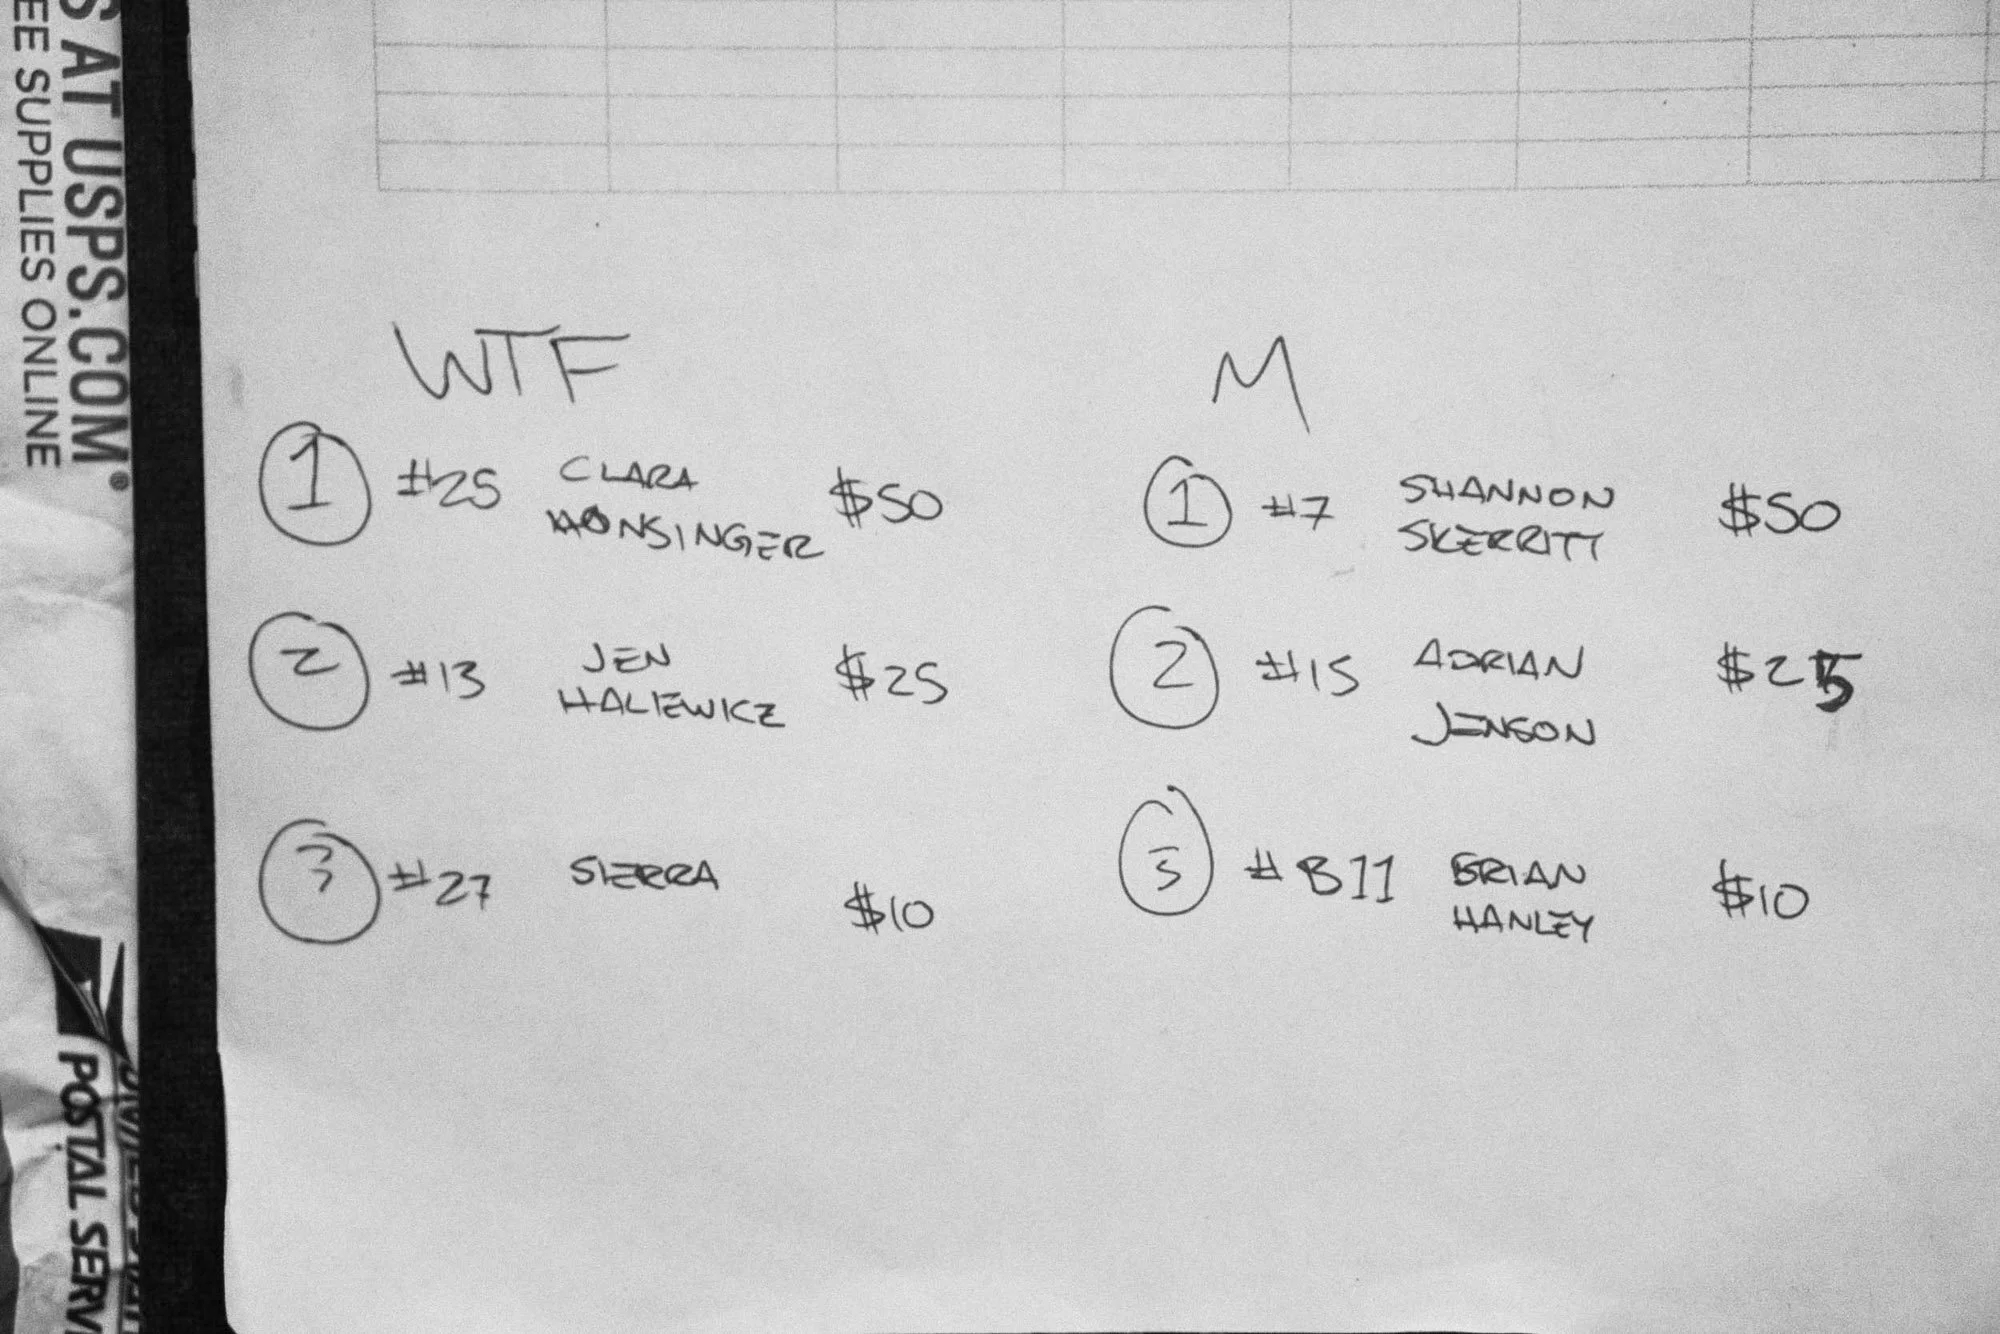 S AT USPS.COM®
EE SUPPLIES ONLINE
POSTAL SERV
WTF
1 #25 CLARA $50
HONSINGER
2 #13 JEN $25
HALIEWICZ
3 #27 SIERRA $10
M
1 #7 SHANNON $50
SKERRITT
2 #15 ADRIAN $25
JENSON
3 #B11 BRIAN $10
HANLEY